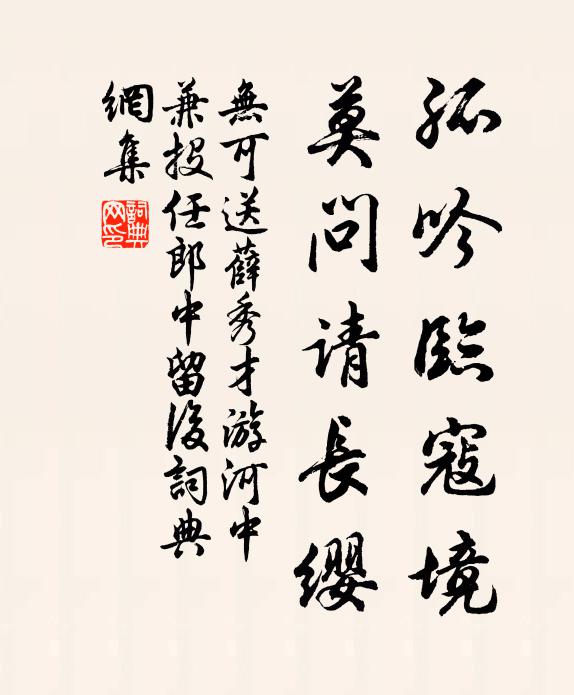 孤吟臨寇境
莫問请長纓
無可送薛秀才游河中
兼投任郎中留後詞典
網集
詞典
网印